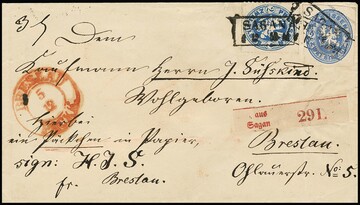 3/
Dem
SAGAN
Kaufmann Herrn J. Süskind
Wohlgeboren.
Hierbei
ein Päckchen in Papier,
aus
Sagan
291.
Breslau.
sign: H. J. S.
Ohlauerstr. No: 5.
fr. Breslau.